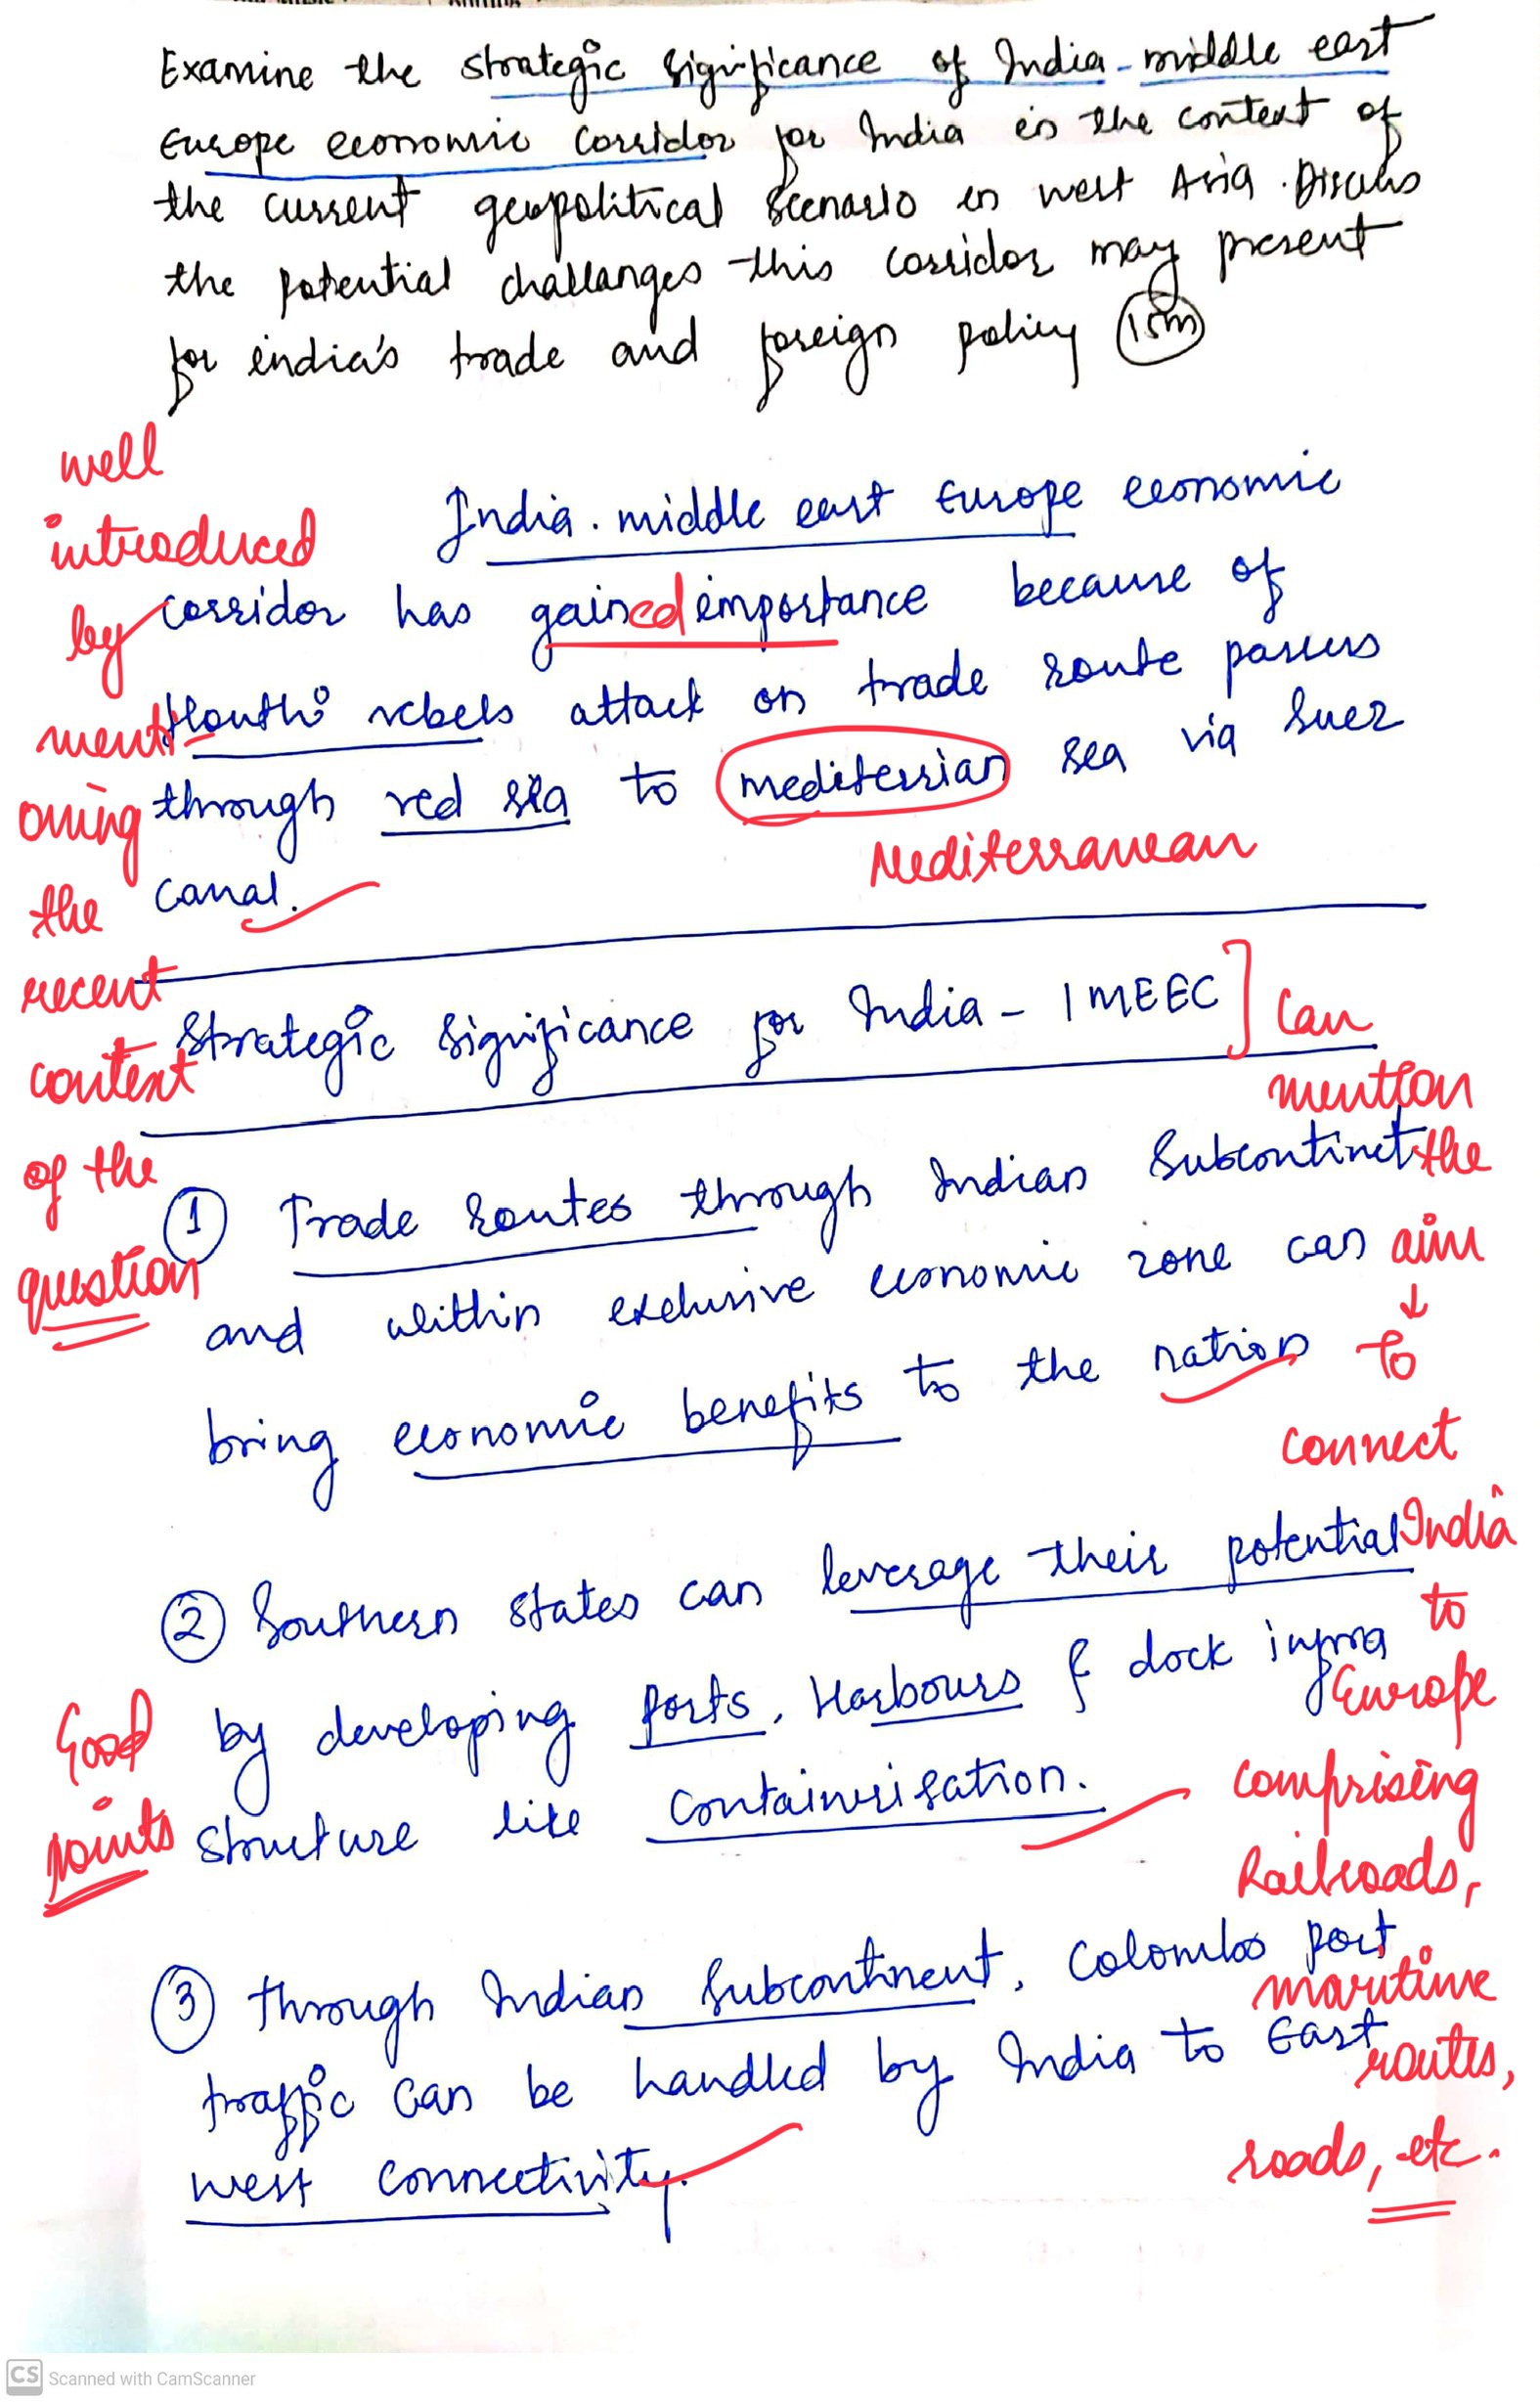 Examine the strategic significance of India-middle east
Europe economic corridor for India in the context of
the current geopolitical scenario in west Asia. Discuss
the potential challanges this corridor may present
for india's trade and foreign policy (15m)
well
introduced
by
menti
oning
the
recent
context
of the
question
India. middle east Europe economic
corridor has gained importance because of
Houthi rebels attack on trade route passes
through red sea to mediterrian sea via Suez
canal.
Mediterranean
Strategic significance for India - IMEEC]
can
mention
the
aim
↓
to
connect
India
to
Europe
comprising
Railroads,
maritime
routes,
roads, etc.
① Trade routes through Indian Subcontinet
and within exclusive economic zone can
bring economic benefits to the nation
② Southern states can leverage their potential
by developing ports, Harbours & dock infra
structure like containerisation.
Good
points
③ through Indian subcontinent, Colombo port
traffic can be handled by India to East
west connectivity.
CS Scanned with CamScanner